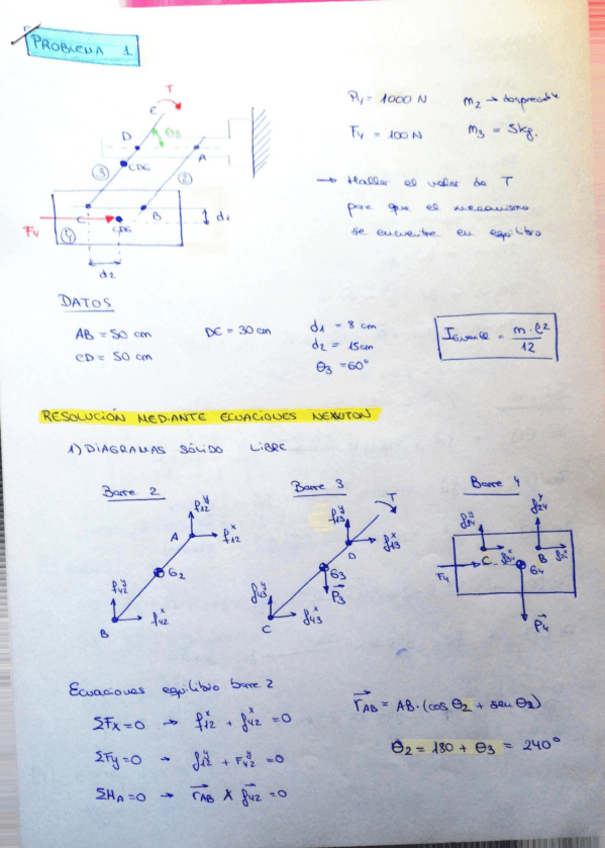 PROBLEMA 1
T
E
D
θ3
A
3
CDG
2
C
B
F4
CDG
d1
4
d2
P4 = 1000 N m2 → despreciable
F4 = 100 N m3 = 5kg.
→ Hallar el valor de T
para que el mecanismo
se encuentre en equilibrio
DATOS
AB = 50 cm DE = 30 cm d1 = 8 cm
CD = 50 cm d2 = 15cm
θ3 = 60°
m · l²
12
RESOLUCIÓN MEDIANTE ECUACIONES NEWTON
1) DIAGRAMAS SÓLIDO LIBRE
Barra 2 Barra 3 Barra 4
f12^y
A f12^x
G2
f42^y
B f42^x
T
f13^y
D f13^x
G3
P3
f43^y
C f43^x
f34^y f24^y
C f34^x B
F4 G4
P4
Ecuaciones equilibrio barra 2
ΣFx = 0 → f12^x + f42^x = 0
ΣFy = 0 → f12^y + F42^y = 0
ΣMA = 0 → rAB x f42 = 0
rAB = AB · (cos θ2 + sen θ2)
θ2 = 180 + θ3 = 240°